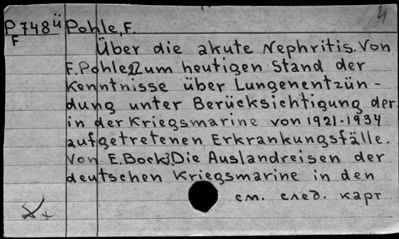 4
P748ü Pohle, F.
F
Über die akute Nephritis. Von
F. Pohle, 2) Zum heutigen Stand der
Kenntnisse über Lungenentzün-
dung unter Berücksichtigung der
in der Kriegsmarine von 1921-1934
aufgetretenen Erkrankungsfälle.
Von E. Bock, 3) Die Auslandreisen der
deutschen Kriegsmarine in den
см. след. карт